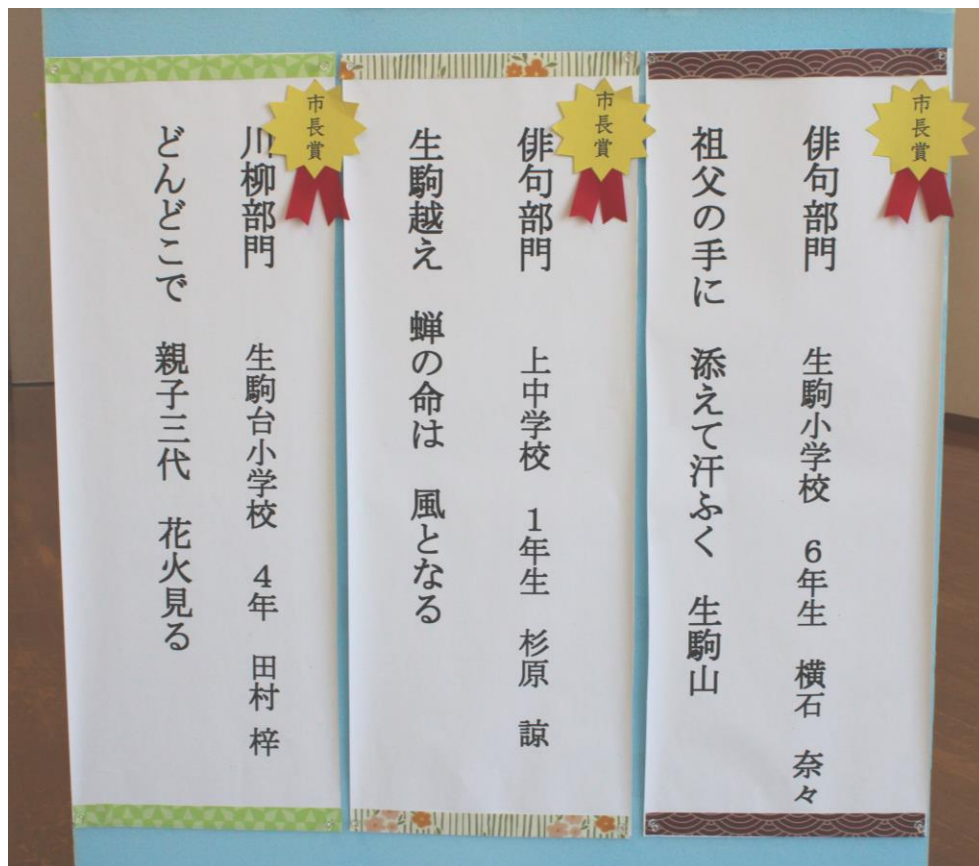 市長賞
俳句部門　生駒小学校　6年生　横石　奈々
祖父の手に　添えて汗ふく　生駒山
市長賞
俳句部門　上中学校　1年生　杉原　諒
生駒越え　蝉の命は　風となる
市長賞
川柳部門　生駒台小学校　4年　田村　梓
どんどこで　親子三代　花火見る